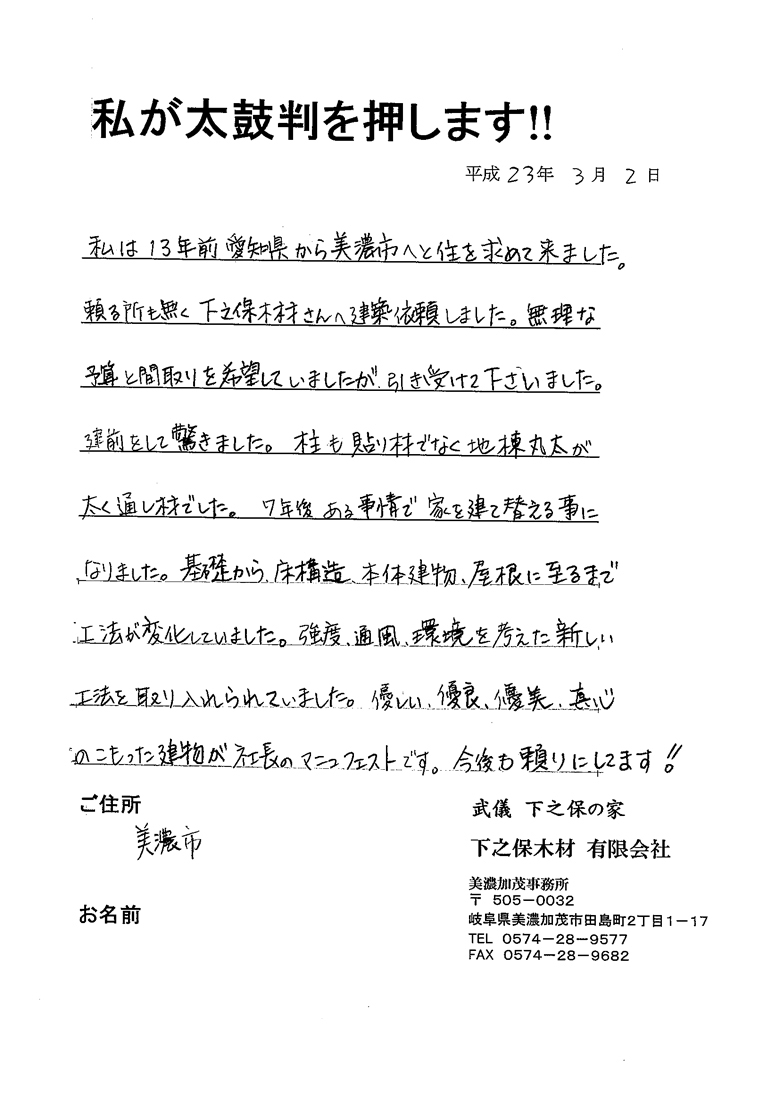 私が太鼓判を押します!!
平成23年 3月 2日
私は13年前愛知県から美濃市へと住を求めて来ました。
頼る所も無く下之保木材さんへ建築依頼しました。無理な
予算と間取りを希望していましたが引き受けて下さいました。
建前をして驚きました。柱も貼り材でなく地棟丸太が
太く通し材でした。7年後ある事情で家を建て替える事に
なりました。基礎から、床構造、本体建物、屋根に至るまで
工法が変化していました。強度、通風、環境を考えた新しい
工法を取り入れられていました。優しい、優良、優美、真心
のこもった建物が社長のマニュフェストです。今後も頼りにしてます!!
ご住所
美濃市
お名前
武儀 下之保の家
下之保木材 有限会社
美濃加茂事務所
〒 505-0032
岐阜県美濃加茂市田島町2丁目1-17
TEL 0574-28-9577
FAX 0574-28-9682